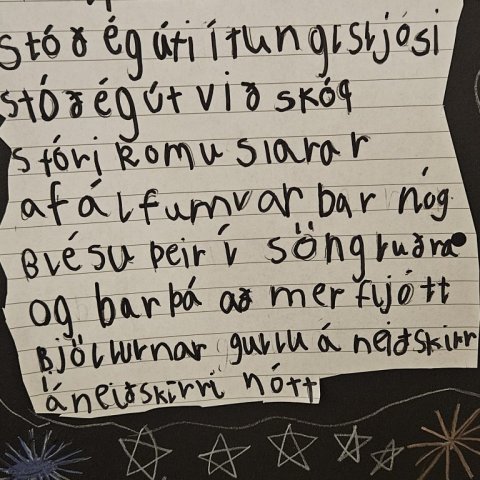 stóð ég úti í tunglsljósi
stóð ég út við skóg
stóri komu slarar
af álfum var bar nóg
Blésu þeir í söngluðra
og bar þá að mer fljótt
Bjöllurnar gullu á neiðskirr
á neiðskirri nótt